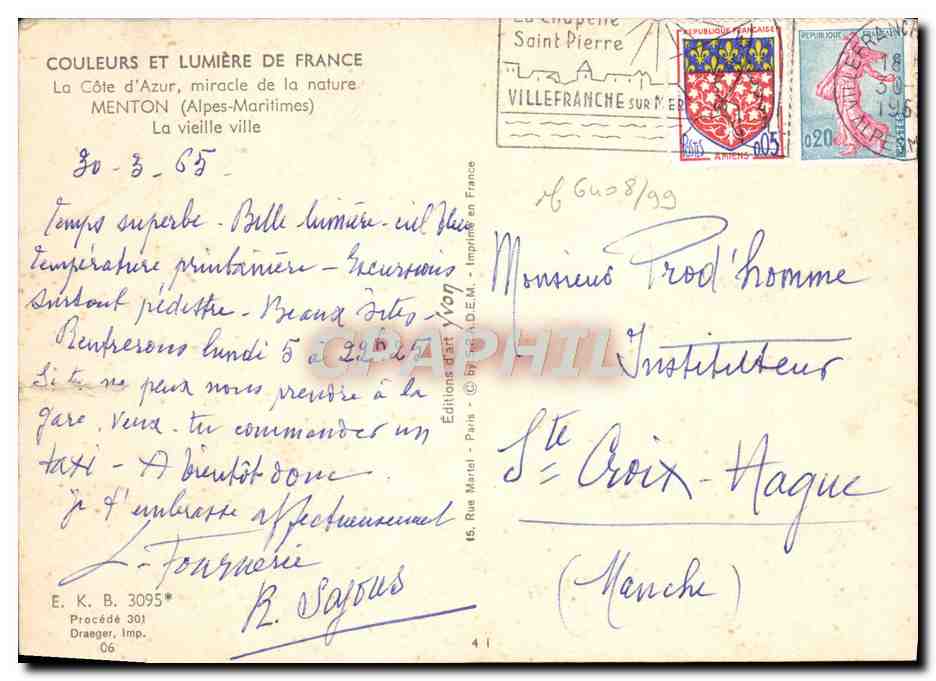 COULEURS ET LUMIÈRE DE FRANCE
La Côte d'Azur, miracle de la nature
MENTON (Alpes-Maritimes)
La vieille ville
30-3-65
Temps superbe - Belle lumière - ciel bleu
Température printanière - Excursions
surtout pédestre - Beaux sites -
Rentrerons lundi 5 à 22h25
Si tu ne peux nous prendre à la
gare, veux-tu commander un
taxi - A bientôt donc
Je t'embrasse affectueusement
L. Fournerie
R. Sajous
E. K. B. 3095*
Procédé 301
Draeger, Imp.
06
15, Rue Martel - Paris - © by - Imprimé en France
Éditions d'art Yvon
41
CPAPHIL
La Chapelle
Saint Pierre
VILLEFRANCHE SUR MER
REPUBLIQUE FRANÇAISE
Postes 0,05
AMIENS
REPUBLIQUE FRANÇAISE
0,20
POSTES
VILLEFRANCHE
18
30
196
ALPES M
6408/99
Monsieur Prod'homme
Instituteur
Ste Croix-Hague
(Manche)